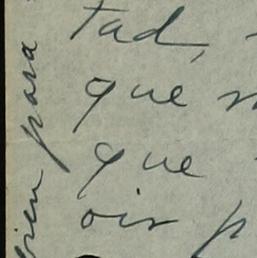 tad,
que
que
oir p
para